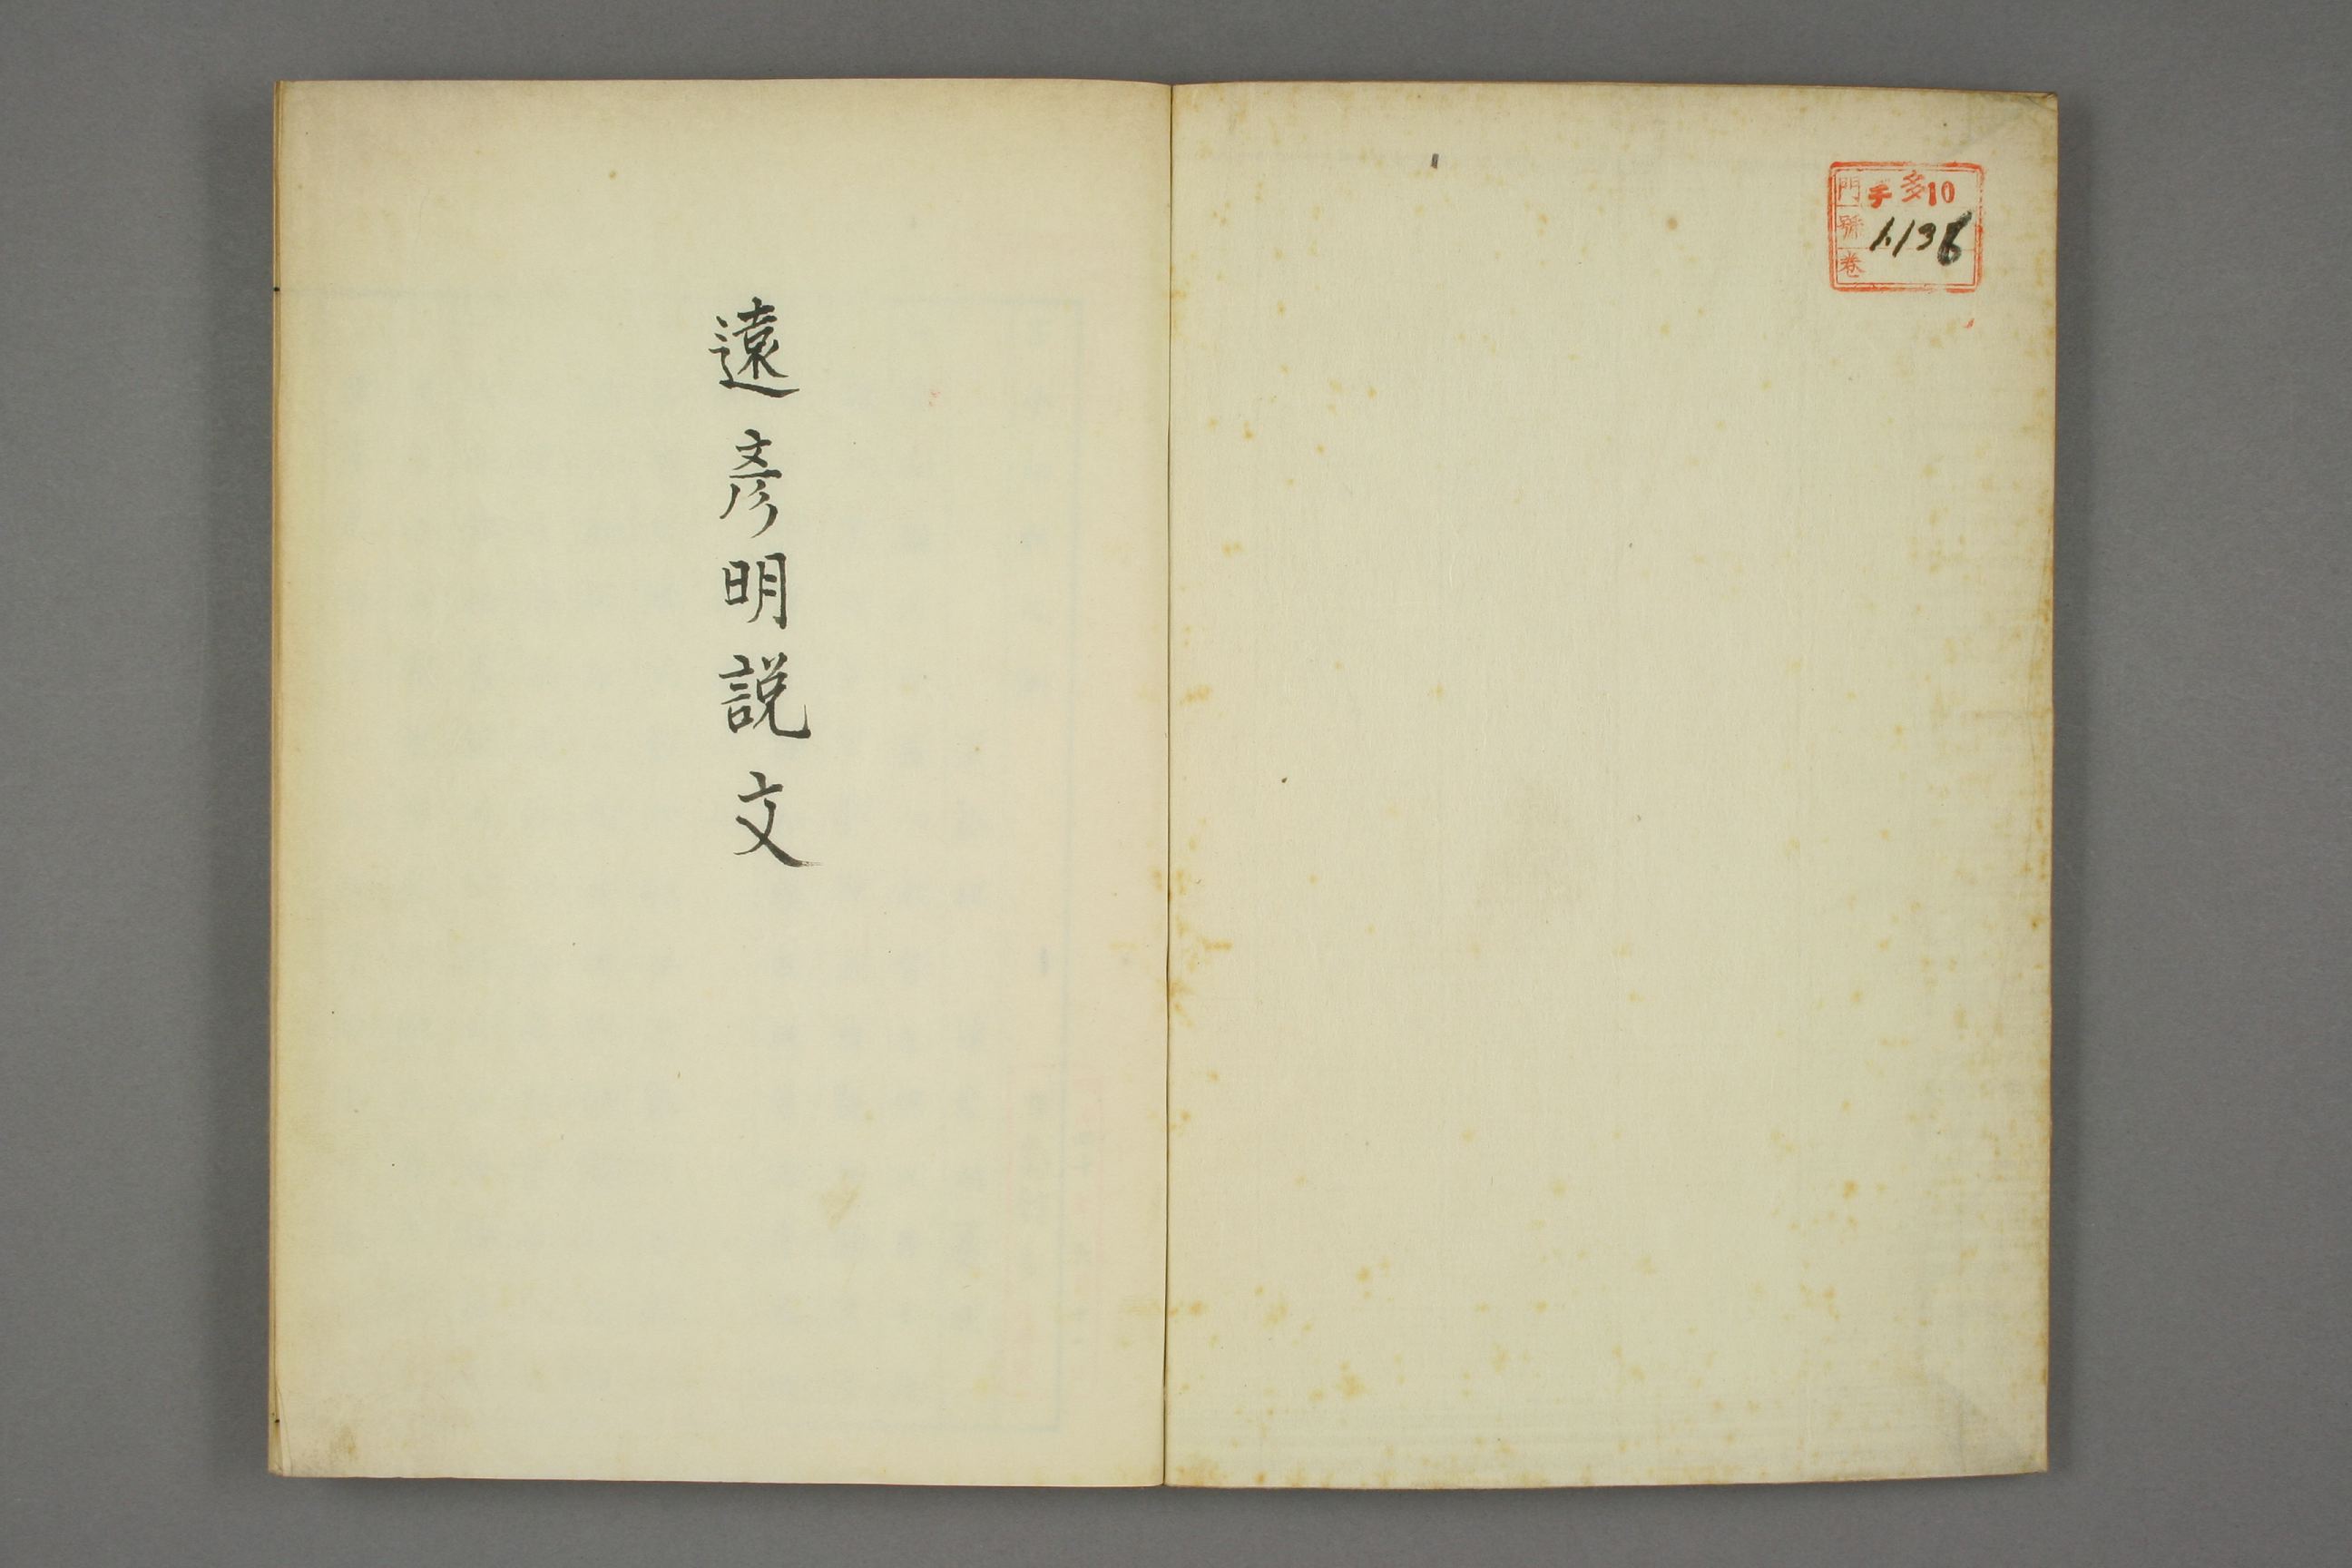 門 手 多10
號 1136
卷
遠彥明說文